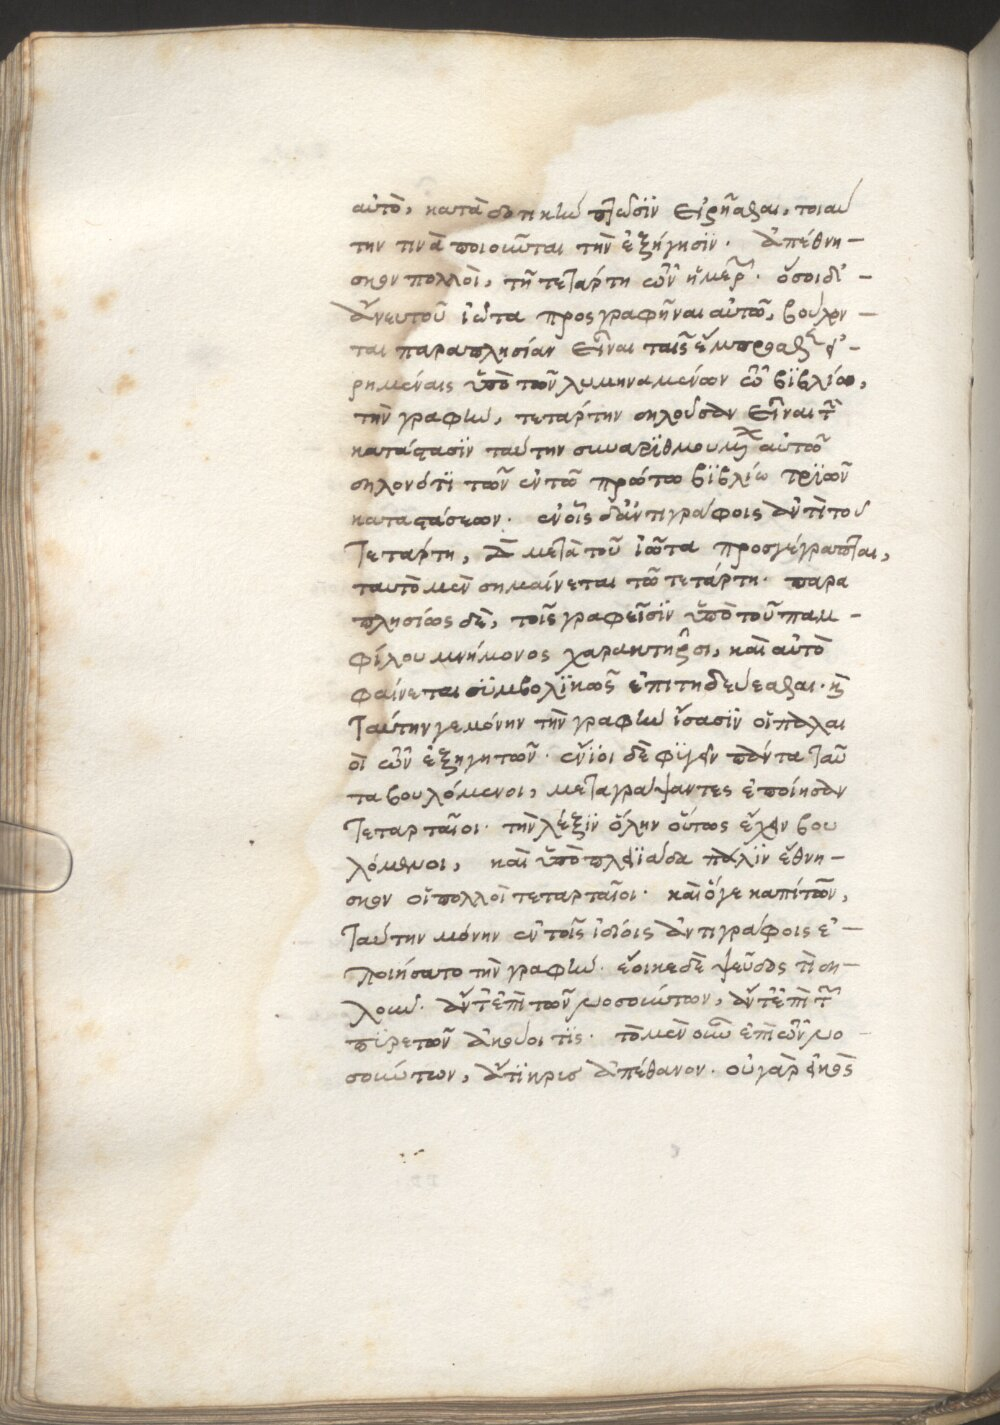 αὐτὸ, κατὰ δοτικὴν πτῶσϊν εἰρῆσθαι, τοιαύ
την τινὰ ποιοῦνται τὴν ἐξήγησϊν. ἀπέθνη-
σκον πολλοὶ, τῆ τετάρτη τῶν ἡμερῶν. ὅσοι δ' -
ἄνευ τοῦ ἰῶτα προσγραφῆναι αὐτῶ, βούλον-
ται παραπλησίαν εἶναι ταῖς ἔμπροσθεν εἰ-
ρημέναις ὑπὸ τῶν λυμηναμένων τῶ βϊβλίω,
τὴν γραφὴν, τετάρτην δηλοῦσαν εἶναι τὴν
κατάστασϊν ταύτην συναρϊθμουμένην αὐτῶ
δηλονότϊ τῶν ἐν τῶ πρώτω βϊβλίω τρϊῶν
καταστάσεων. ἐν οἷς δ' ἀντιγράφοις ἀντὶ τοῦ
τετάρτη, δ μετὰ τοῦ ἰῶτα προσγέγραπται,
ταυτὸ μὲν σημαίνεται τῶ τετάρτη. παρα
πλησίως δὲ, τοῖς γραφεῖσϊν ὑπὸ τοῦ παμ-
φίλου μνήμονος χαρακτῆρσι, καὶ αὐτὸ
φαίνεται σϋμβολϊκῶς ἐπιτηδεύεσθαι. καὶ
ταύτην γε μόνην τὴν γραφὴν ἴσασϊν οἱ πάλαι
οἱ τῶν ἐξηγητῶν. ἔνϊοι δὲ φϋγεῖν πάντα ταῦ
τα βουλόμενοι, μεταγράψαντες ἐποίησαν
τεταρταῖοι. τὴν λέξϊν ὅλην οὕτως ἔχειν βου
λόμενοι, καὶ ὑπὸ πλεϊάδα πάλϊν ἔθνη-
σκον οἱ πολλοὶ τεταρταῖοι. καὶ ὅγε καπίτων,
ταύτην μόνην ἐν τοῖς ἰδίοις ἀντιγράφοις ἐ-
ποιήσατο τὴν γραφὴν. ἔοικε δὲ ψεῦδος τὶ δη-
λοῦν. ἄν τ' ἐπὶ τῶν νοσούντων, ἄν τ' ἐπὶ τῶν
πϋρετῶν ἀκούοι τϊς. τὸ μὲν οὖν ἐπὶ τῶν νο
σούντων, ἄντϊκρις ἀπέθανον. οὐ γὰρ εἰκὸς